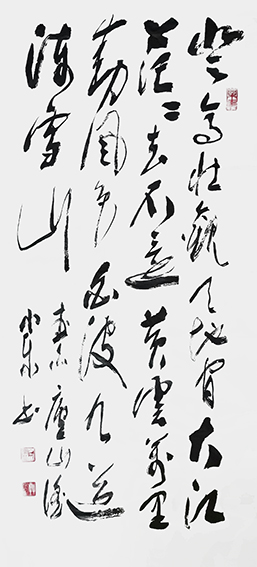 登高壮观天地间大江
茫茫去不还黄云万里
动风色白波九道
流雪山
李白庐山谣
小泉书